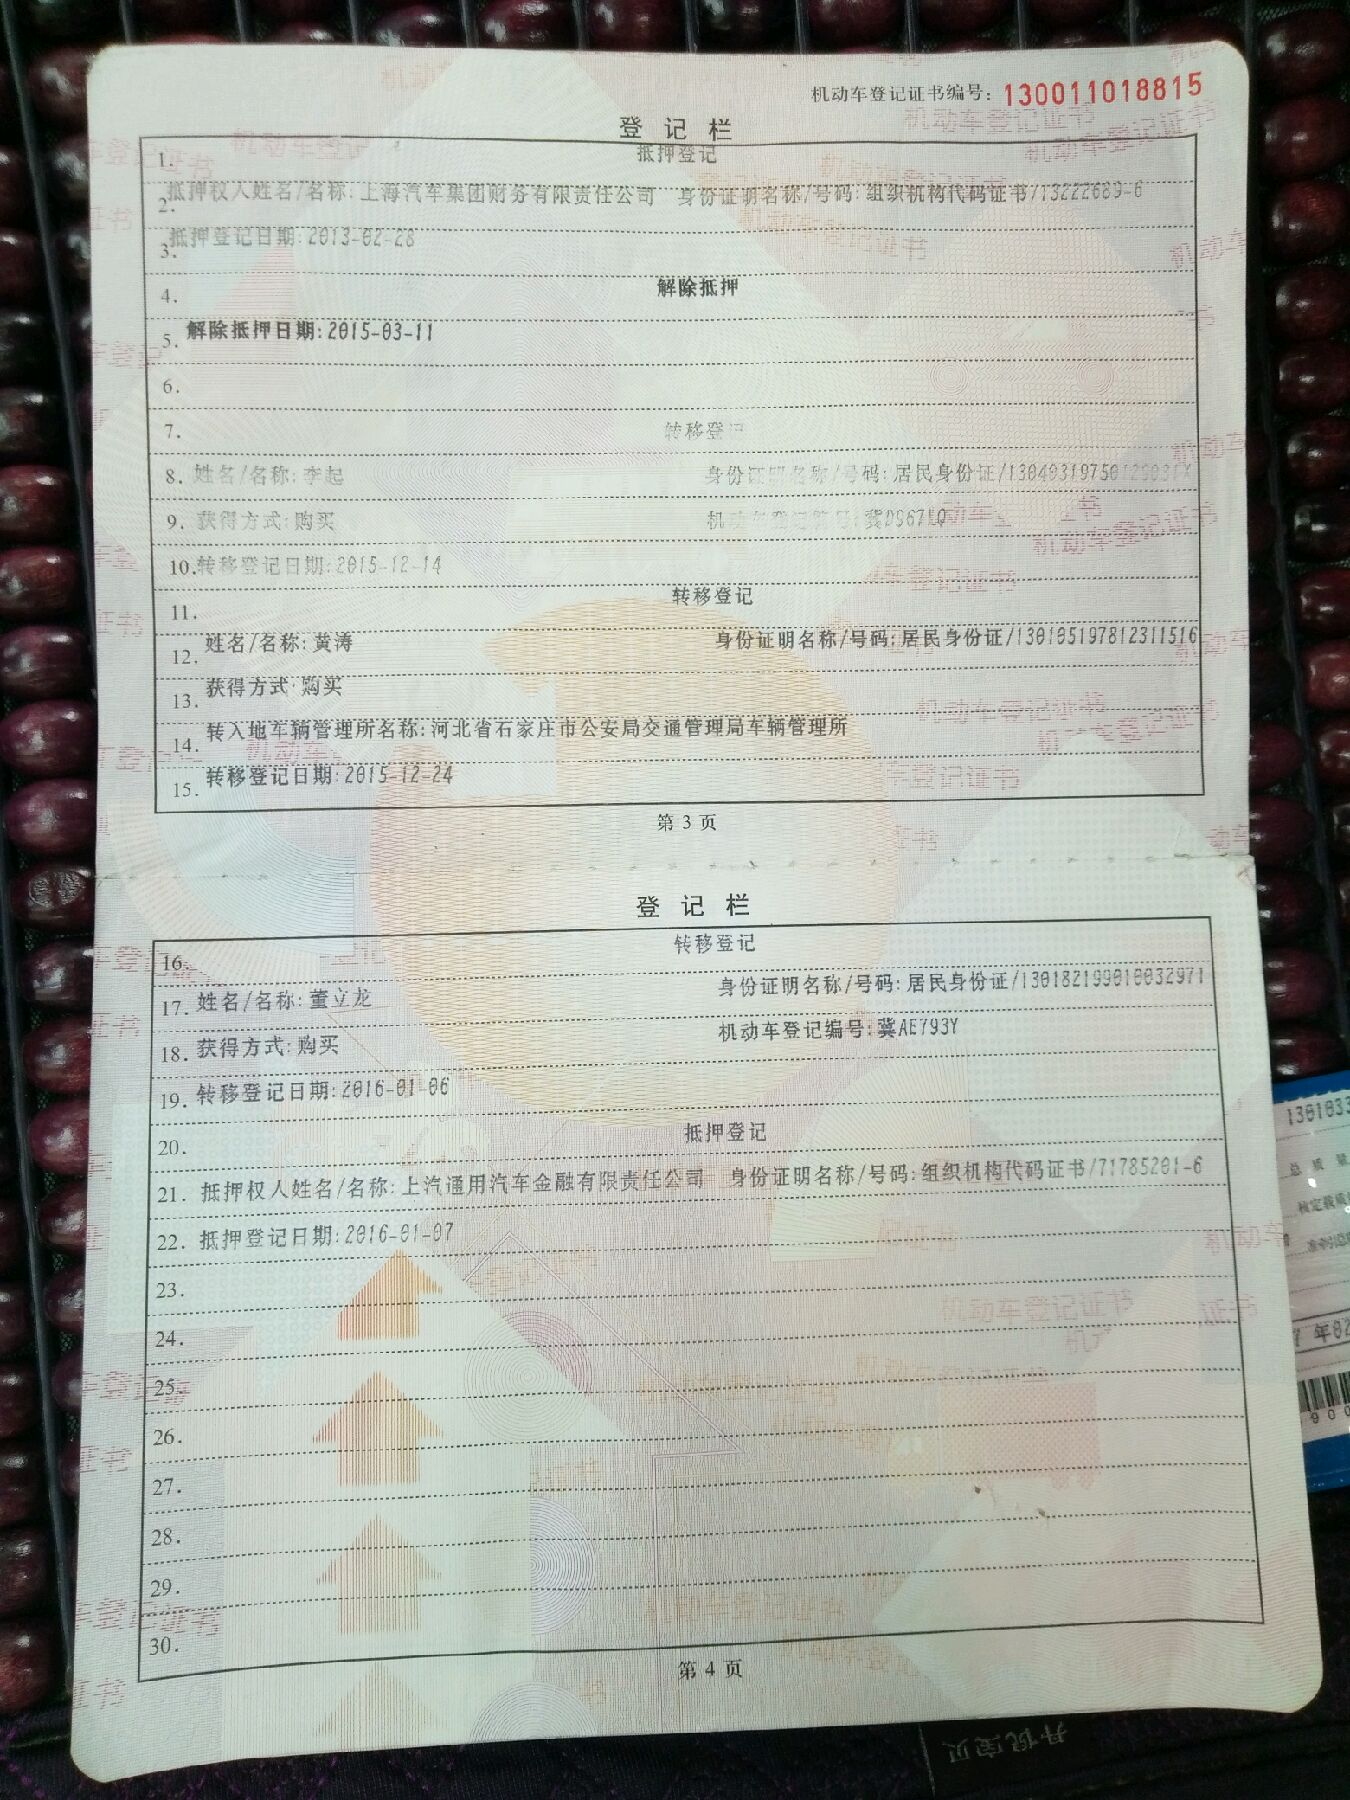 机动车登记证书编号：130011018815
登 记 栏
1. 抵押登记
2. 抵押权人姓名/名称:上海汽车集团财务有限责任公司 身份证明名称/号码:组织机构代码证书/13222689-6
3. 抵押登记日期:2013-02-28
4. 解除抵押
5. 解除抵押日期:2015-03-11
6.
7. 转移登记
8. 姓名/名称:李起 身份证明名称/号码:居民身份证
9. 获得方式:购买 机动车登记编号:
10. 转移登记日期:2015-12-14
11. 转移登记
12. 姓名/名称:黄涛 身份证明名称/号码:居民身份证/130105197812311516
13. 获得方式:购买
14. 转入地车辆管理所名称:河北省石家庄市公安局交通管理局车辆管理所
15. 转移登记日期:2015-12-24
第 3 页
登 记 栏
16. 转移登记
17. 姓名/名称:董立龙 身份证明名称/号码:居民身份证/130182199010032971
18. 获得方式:购买 机动车登记编号:冀AE793Y
19. 转移登记日期:2016-01-06
20. 抵押登记
21. 抵押权人姓名/名称:上汽通用汽车金融有限责任公司 身份证明名称/号码:组织机构代码证书/71785201-6
22. 抵押登记日期:2016-01-07
23.
24.
25.
26.
27.
28.
29.
30.
第 4 页